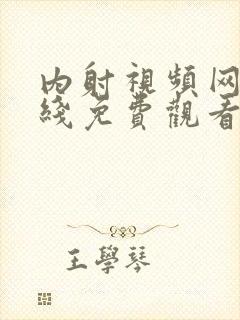 内射視頻网
綫免費觀看
王學琴